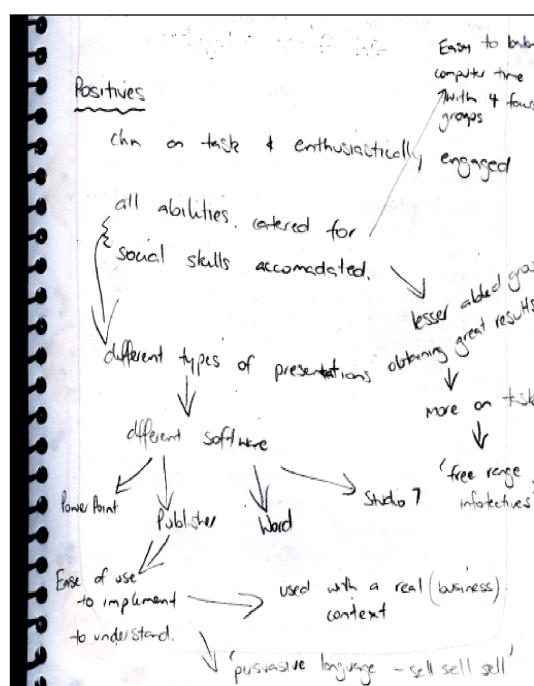 Easy to
computer time
with 4
groups
Positives
chn on task & enthusiastically engaged
all abilities catered for
social skills accomadated.
lesser abled
different types of presentations obtaining great results
more on task
different software
'free range
infotectives'
PowerPoint
Publisher
Word
Studio 7
Ease of use
- to implement
- to understand.
used with a real (business)
context
'pursvasive language - sell sell sell'